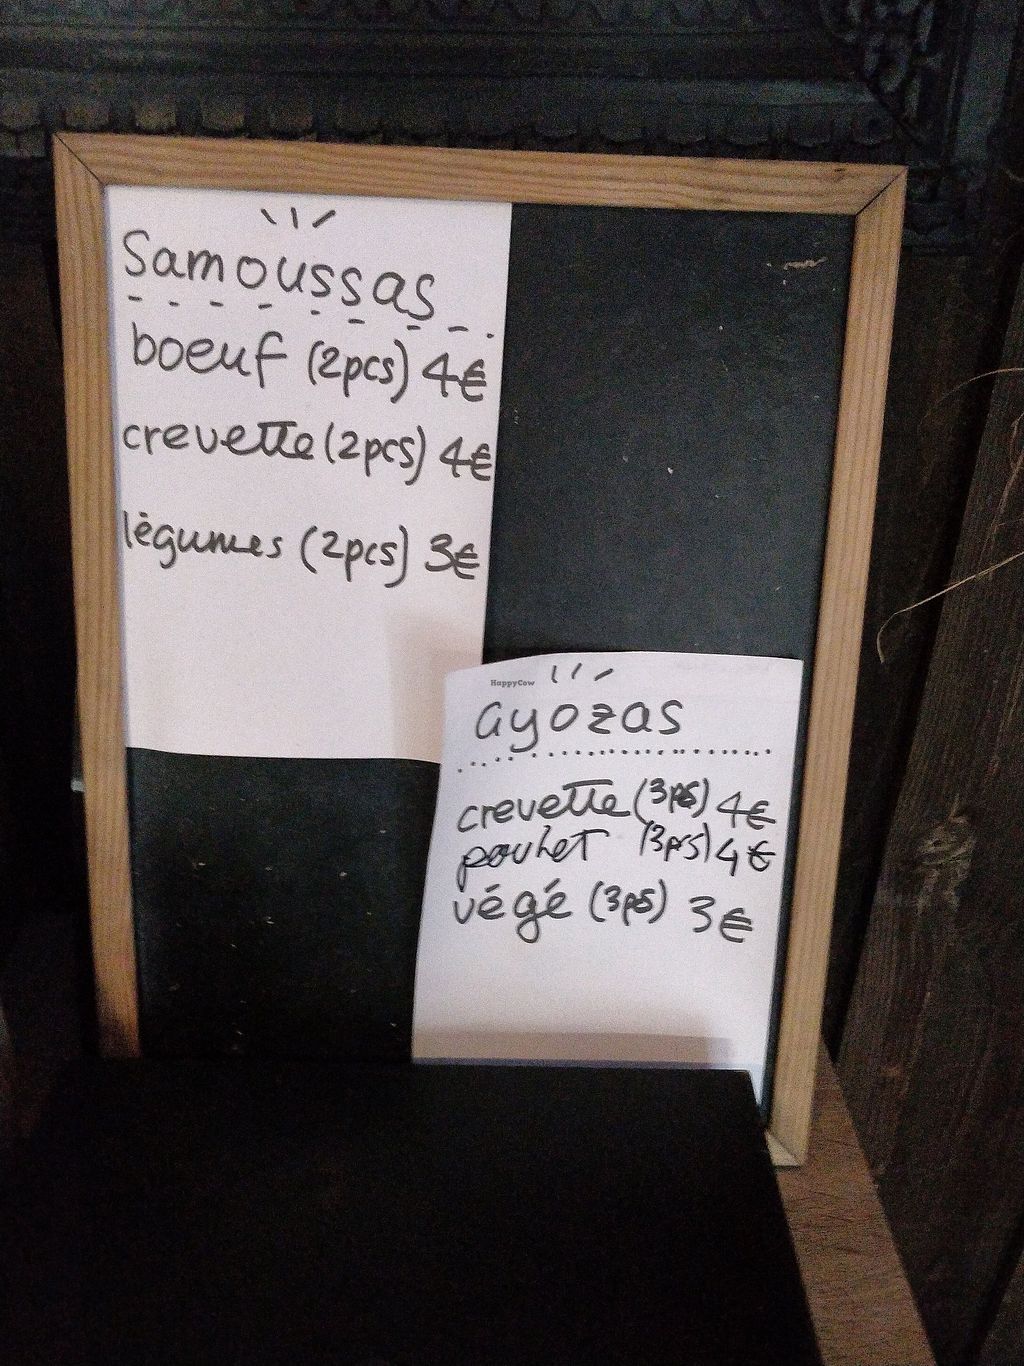 Samoussas
boeuf (2pcs) 4€
crevette (2pcs) 4€
légumes (2pcs) 3€
HappyCow
Gyozas
crevette (3ps) 4€
poulet (3ps) 4€
végé (3ps) 3€